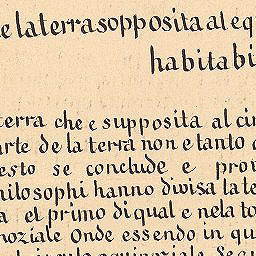 e la terra sopposita al eq
habitabi
terra che e supposita al cir
arte de la terra non e tanto c
esto se conclude e prov
hilosophi hanno divisa la te
a el primo di qual e nela to
noziale Onde essendo in qu